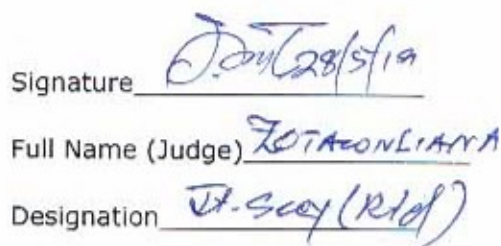 Signature 28/5/19
Full Name (Judge) ZOTACONLIANA
Designation Jt. Secy (Rtd)